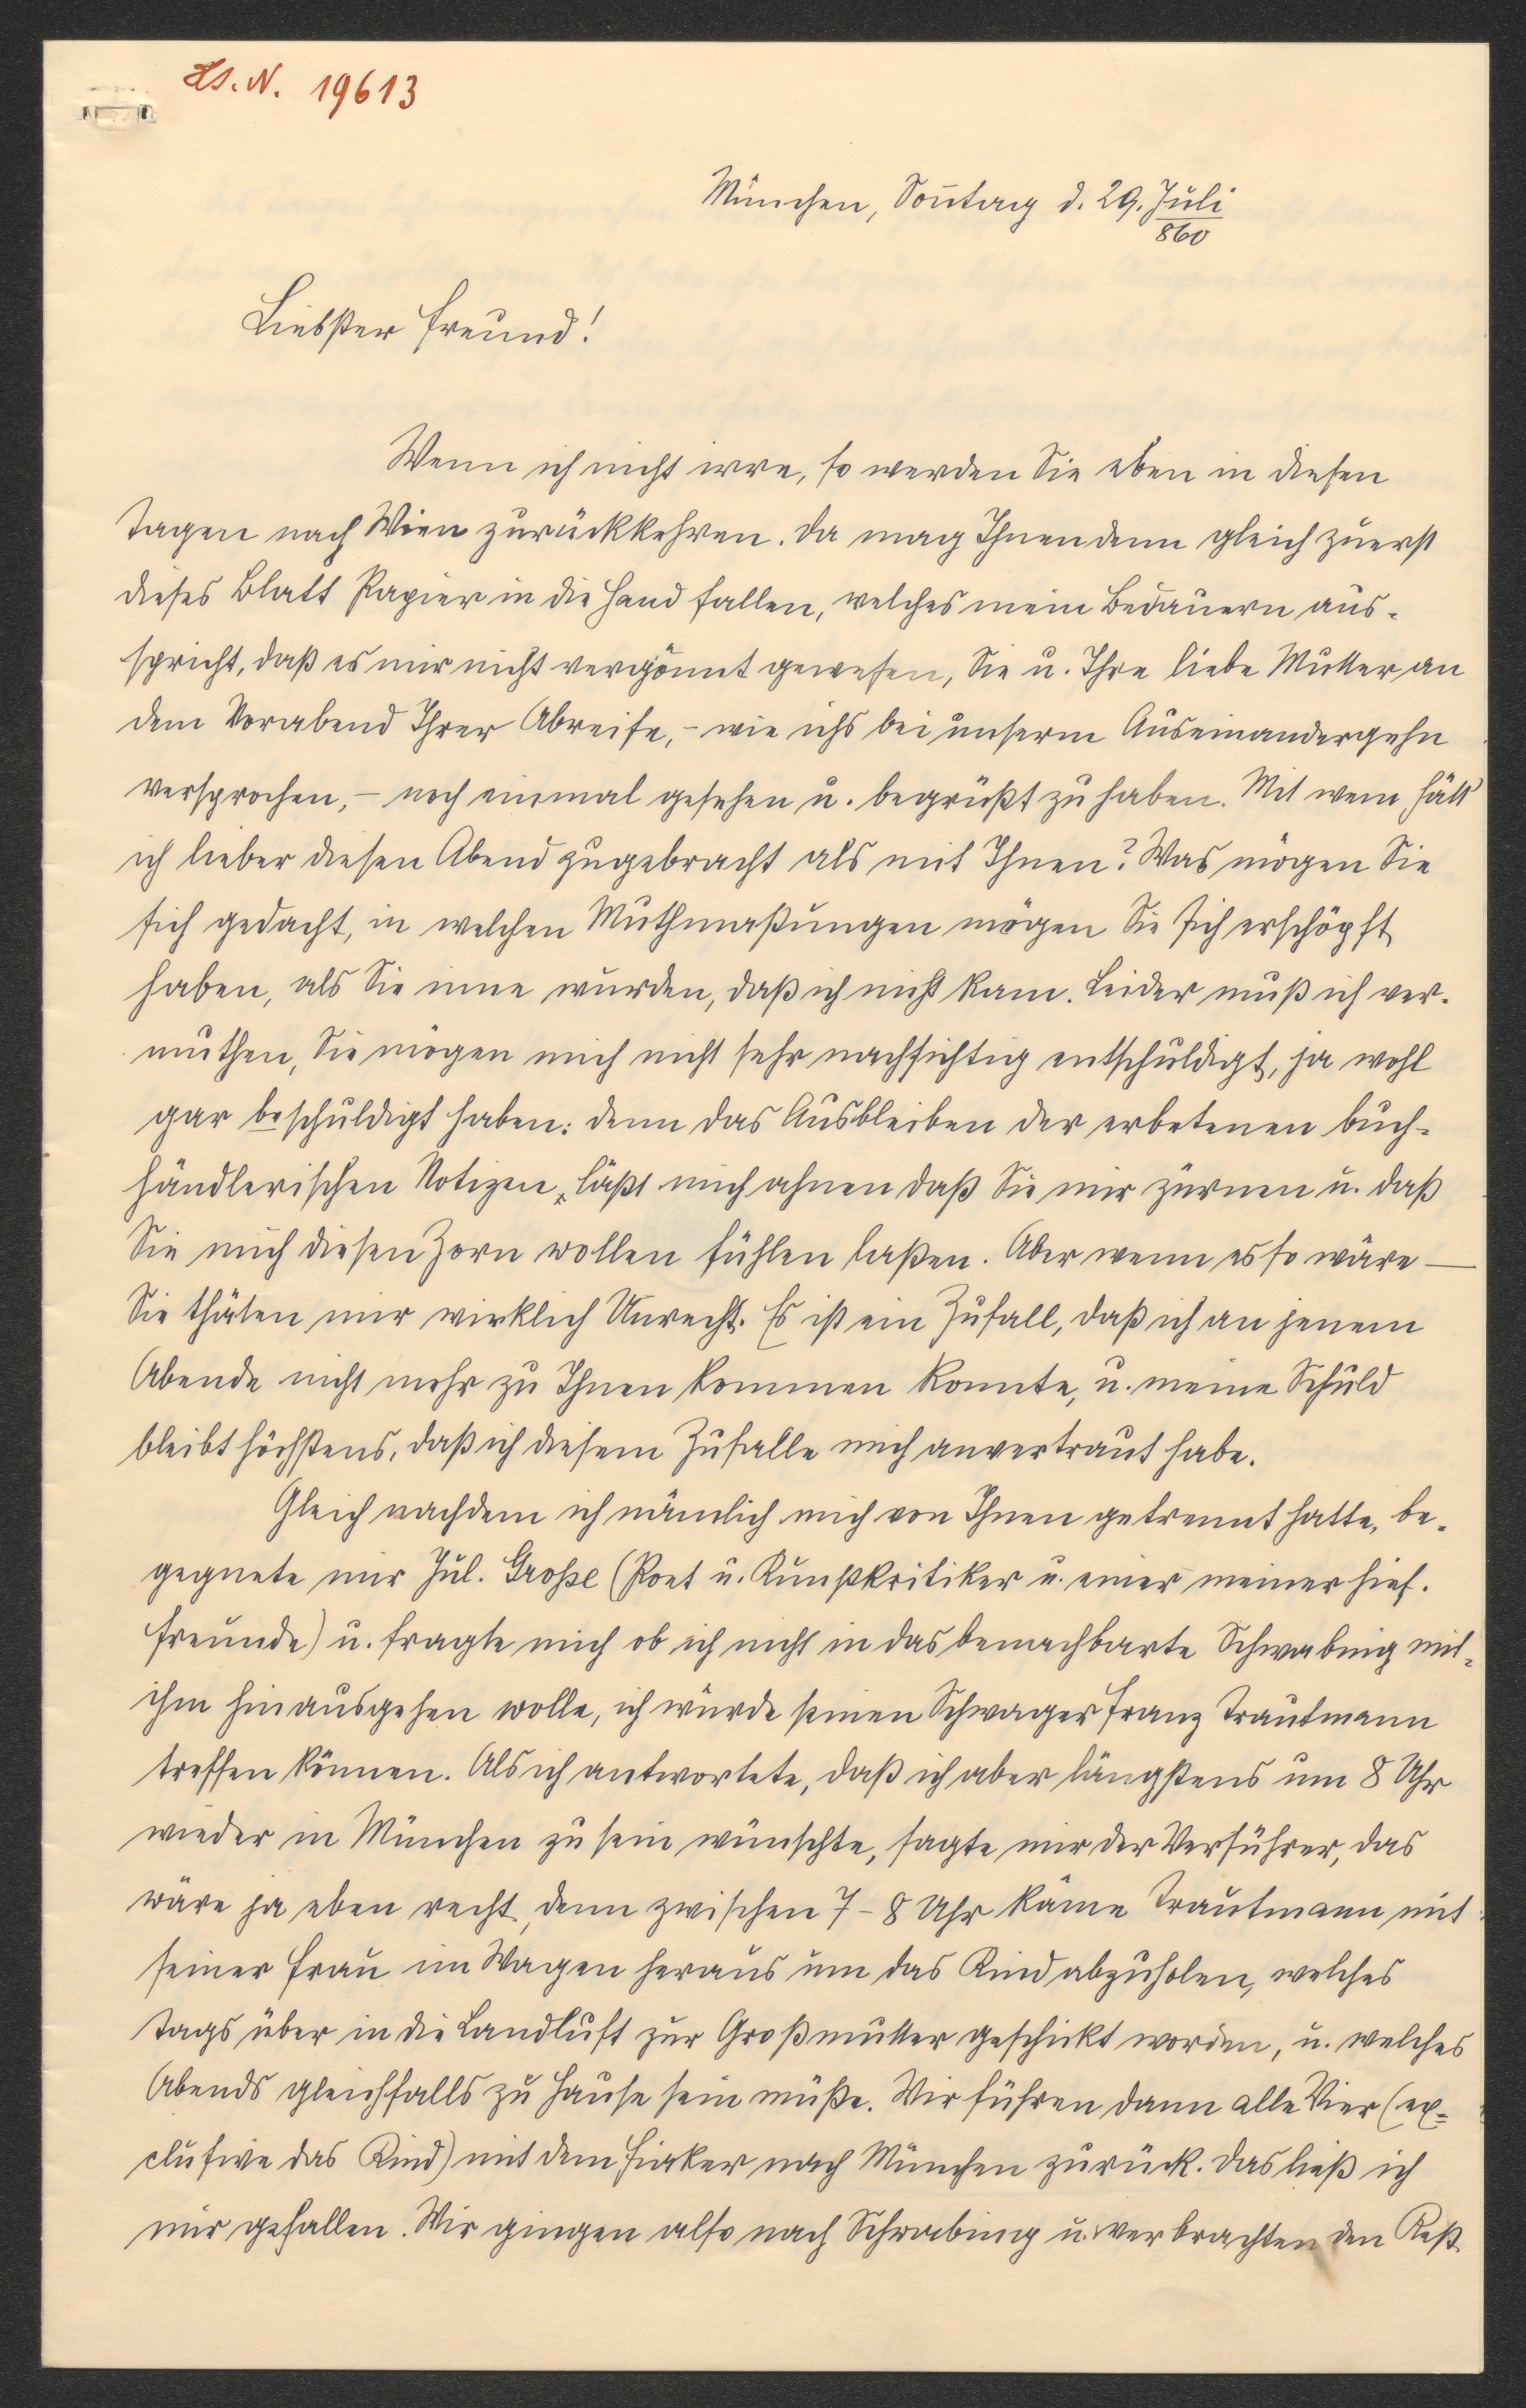 Hs. N. 19613
München, Sontag d. 29. Juli
860
Liebster Freund!
Wenn ich nicht irre, so werden Sie eben in diesen
Tagen nach Wien zurückkehren. Da mag Ihnen denn gleich zuerst
dieses Blatt Papier in die Hand fallen, welches mein Bedauern aus-
spricht, daß es mir nicht vergönnt gewesen, Sie u. Ihre liebe Mutter an
dem Vorabend Ihrer Abreise, – wie ichs bei unserm Auseinandergehn
versprochen, – noch einmal gesehen u. begrüßt zu haben. Mit wem hätt'
ich lieber diesen Abend zugebracht als mit Ihnen? Was mögen Sie
sich gedacht, in welchen Muthmaßungen mögen Sie sich erschöpft
haben, als Sie inne wurden, daß ich nicht kam. Leider muß ich ver-
muthen, Sie mögen mich nicht sehr nachsichtig entschuldigt, ja wohl
gar beschuldigt haben: denn das Ausbleiben der erbetenen buch-
händlerischen Notizen läßt mich ahnen daß Sie mir zürnen u. daß
Sie mich diesen Zorn wollen fühlen laßen. Aber wenn es so wäre —
Sie thäten mir wirklich Unrecht. Es ist ein Zufall, daß ich an jenem
Abende nicht mehr zu Ihnen kommen konnte, u. meine Schuld
bleibt höchstens, daß ich diesem Zufalle mich anvertraut habe.
Gleich nachdem ich nämlich mich von Ihnen getrennt hatte, be-
gegnete mir Jul. Große (Poet u. Kunstkritiker u. einer meiner hies.
Freunde) u. fragte mich ob ich nicht in das benachbarte Schwabing mit
ihm hinausgehen wolle, ich würde seinen Schwager Franz Trautmann
treffen können. Als ich antwortete, daß ich aber längstens um 8 Uhr
wieder in München zu sein wünschte, sagte mir der Verführer, das
wäre ja eben recht, denn zwischen 7 – 8 Uhr käme Trautmann mit
seiner Frau im Wagen heraus um das Kind abzuholen, welches
tags über in die Landluft zur Großmutter geschickt worden, u. welches
Abends gleichfalls zu Hause sein müße. Wir führen dann alle Vier (ex-
clusive das Kind) mit dem Fiaker nach München zurück. Das ließ ich
mir gefallen. Wir gingen also nach Schwabing u. verbrachten den Rest